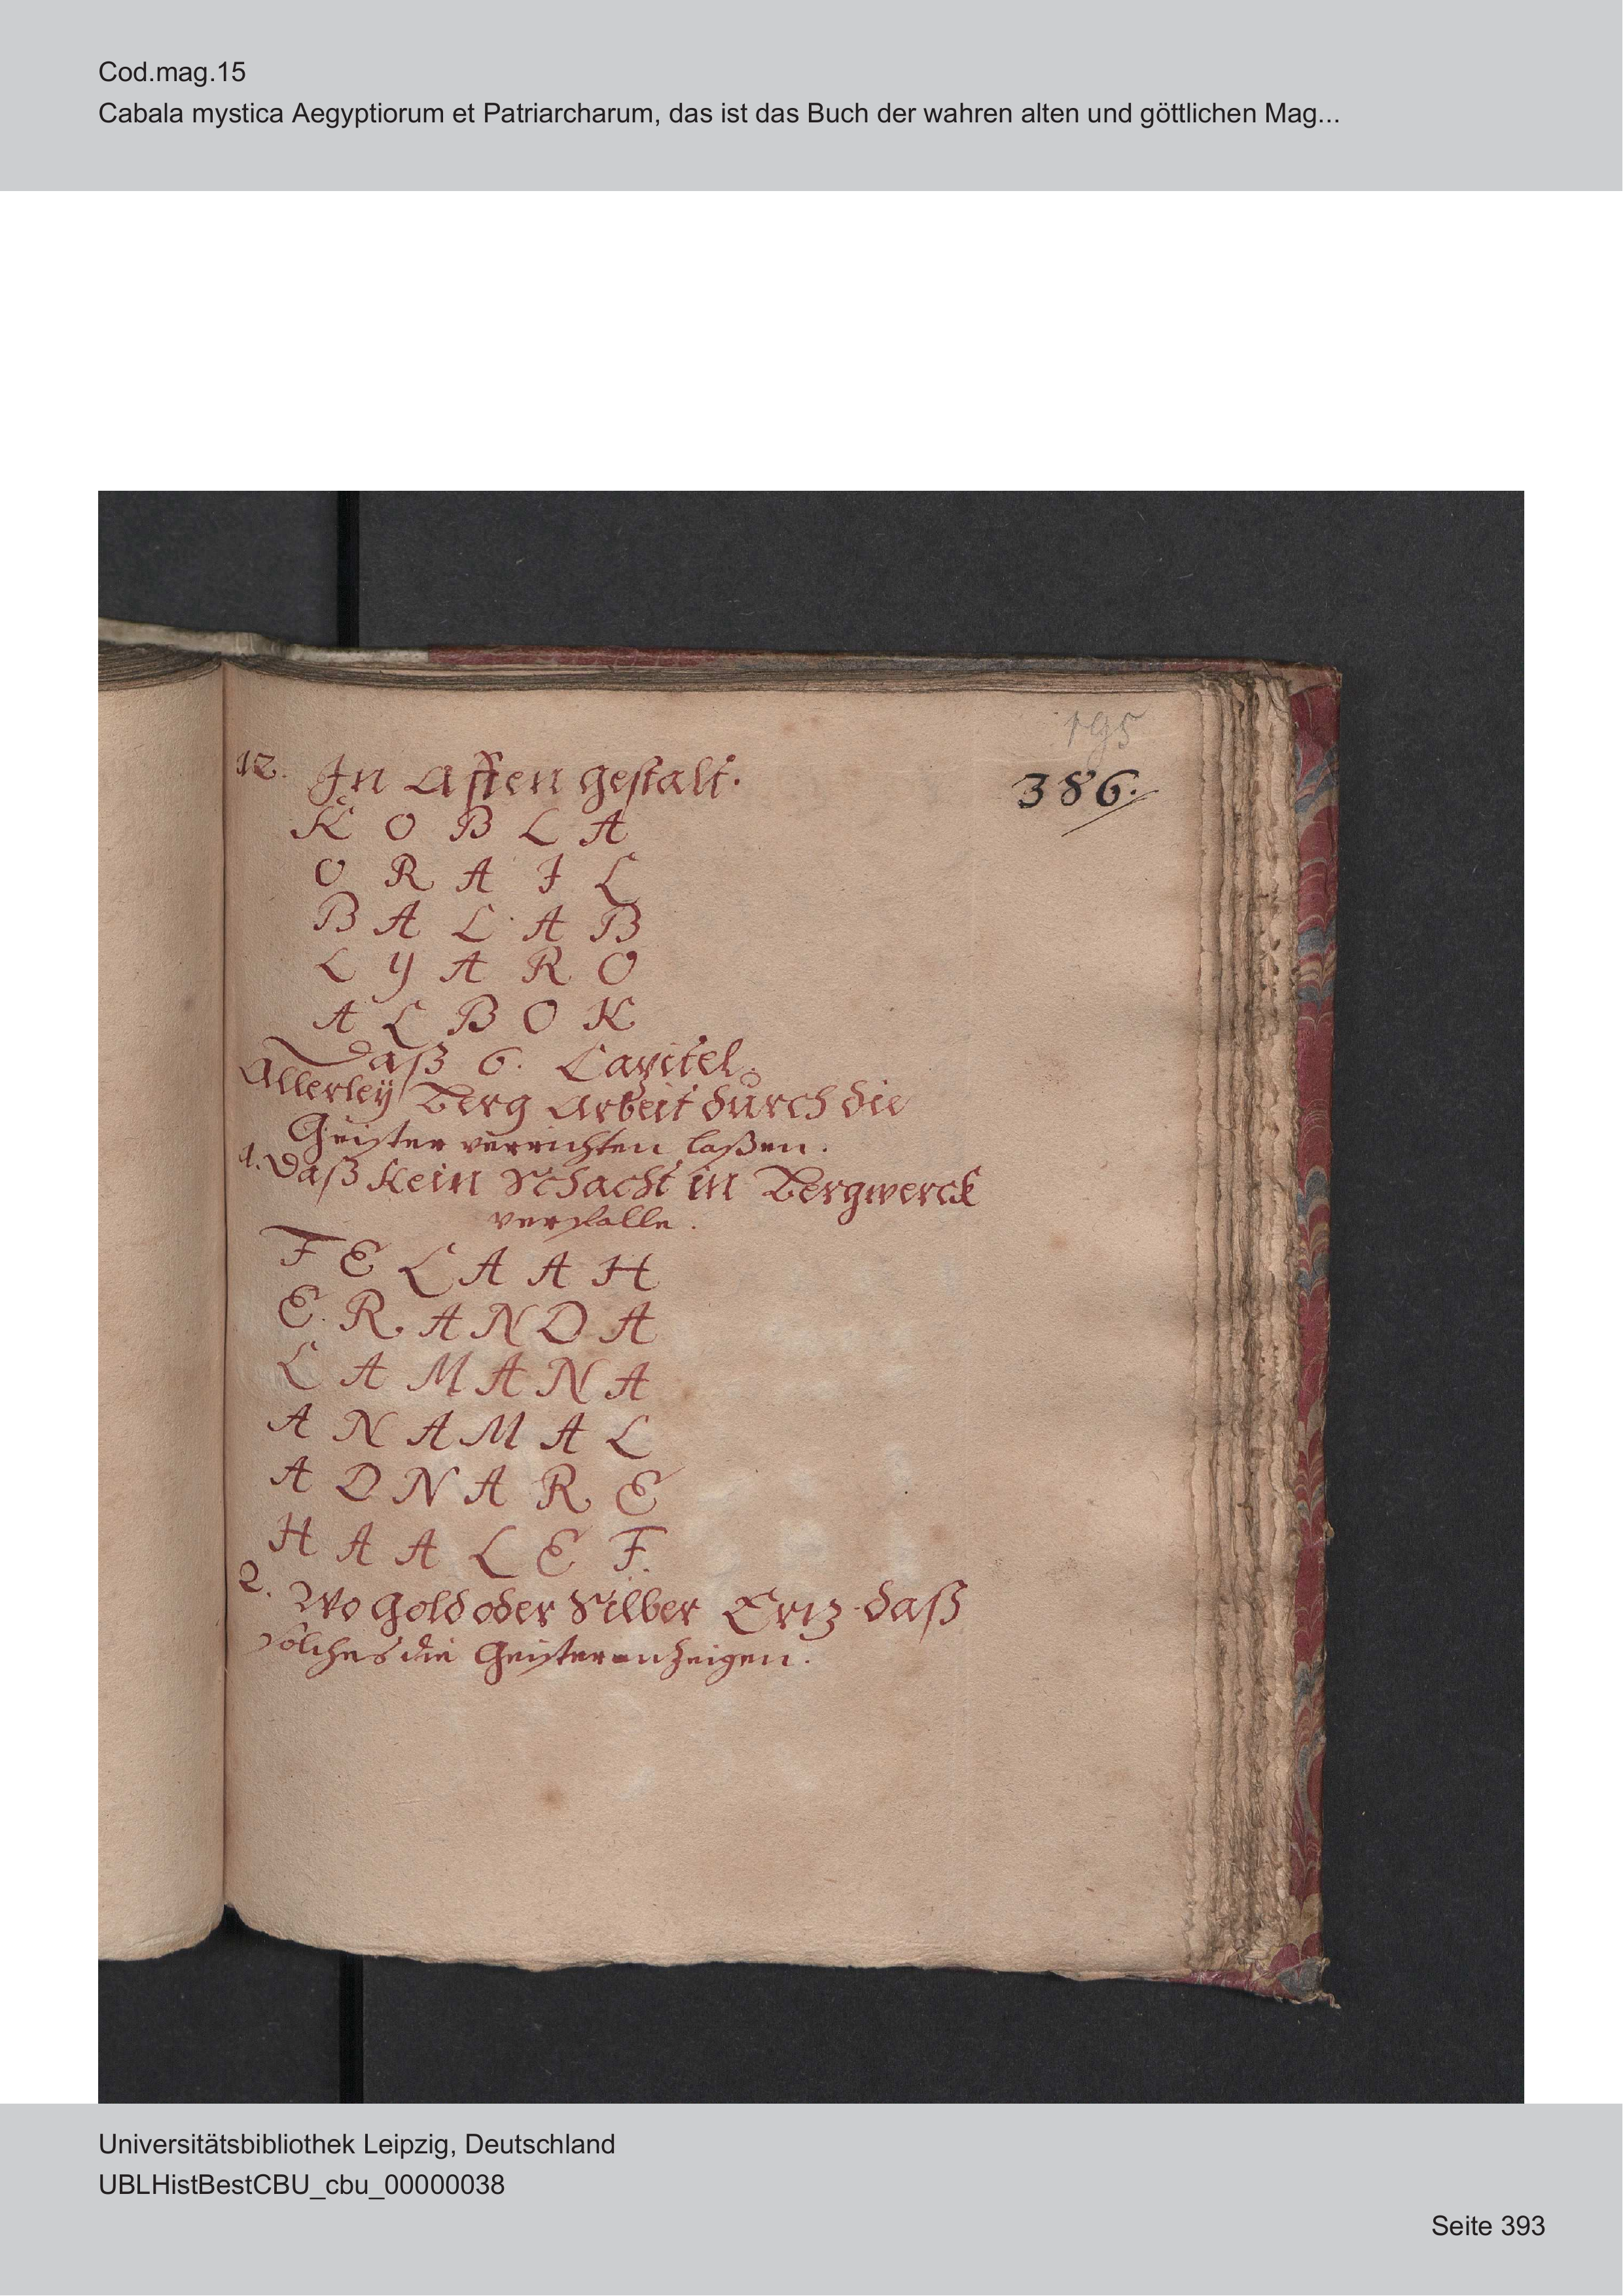 Cod.mag.15
Cabala mystica Aegyptiorum et Patriarcharum, das ist das Buch der wahren alten und göttlichen Mag...
195
386.
12. In Affen gestalt.
K O B L A
O R A I L
B A L A B
L Y A R O
A L B O K
Daß 6. Capitel.
Allerleÿ Berg Arbeit durch die
Geister verrichten laßen.
1. Daß kein Schacht in Bergwerck
verfalle.
F E L A A H
E R A N D A
L A M A N A
A N A M A L
A D N A R E
H A A L E F.
2. Wo Gold oder Silber Ertz daß
solches die Geister anzeigen.
Universitätsbibliothek Leipzig, Deutschland
UBLHistBestCBU_cbu_00000038
Seite 393